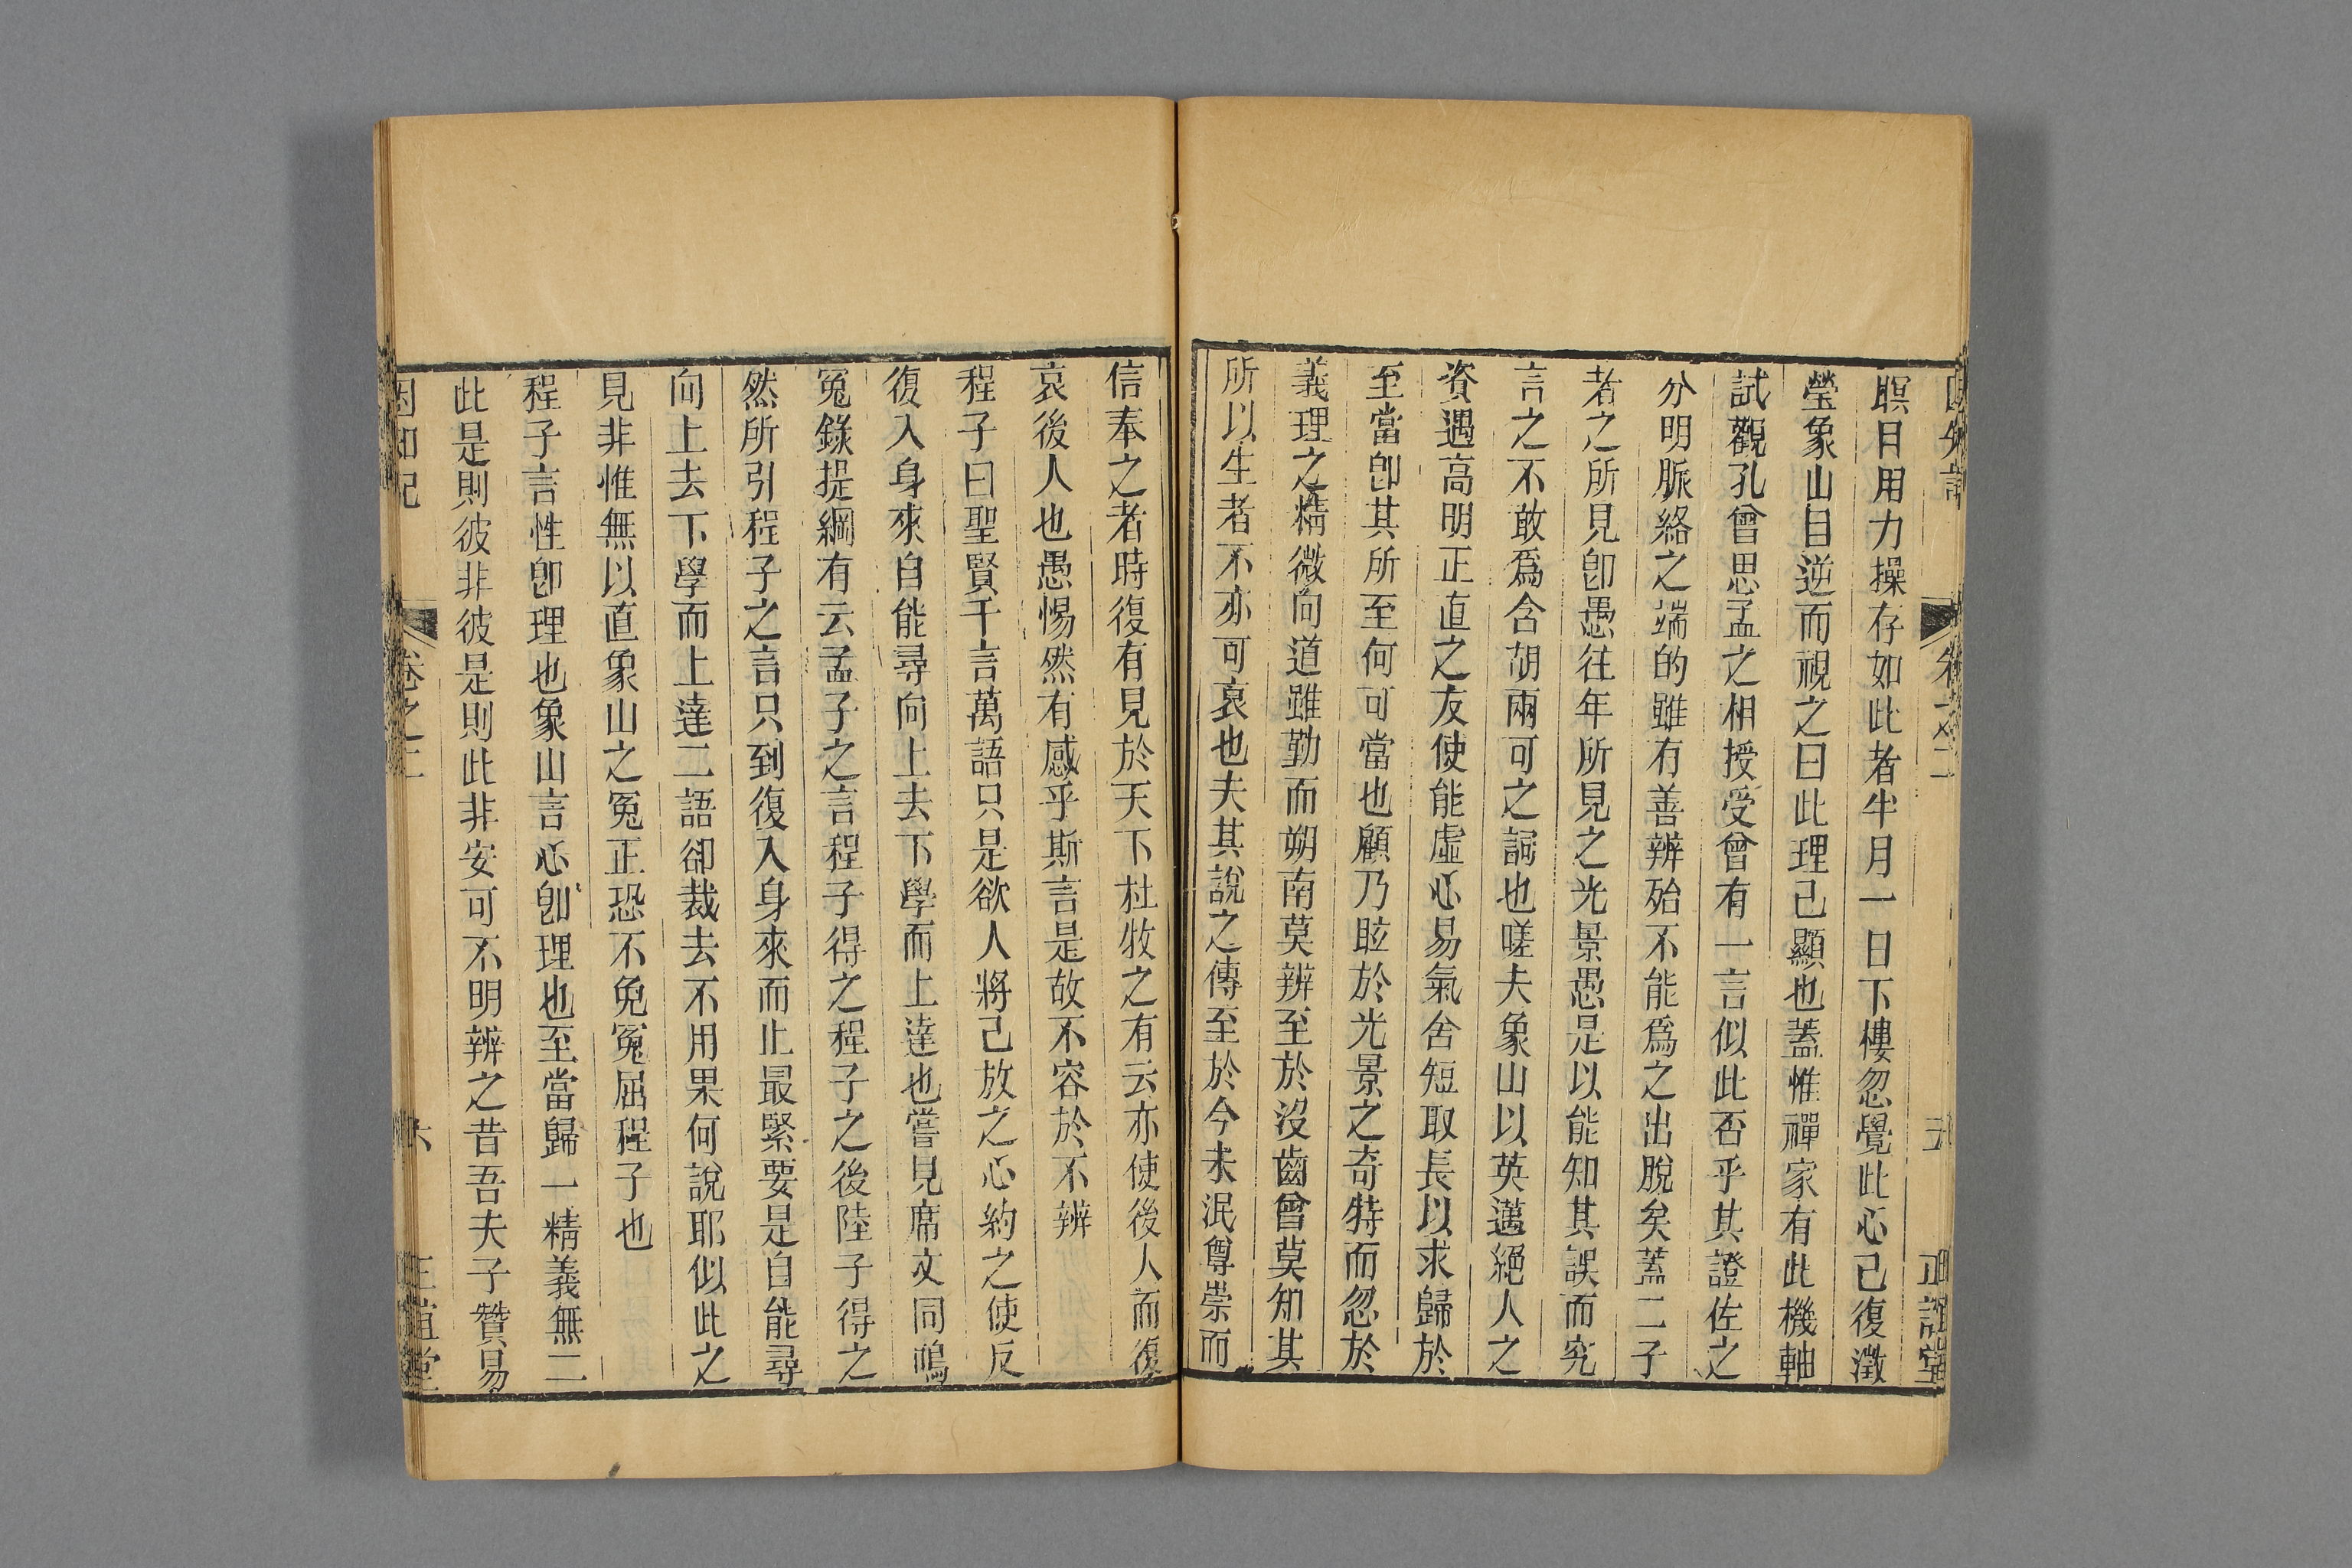 困知記 卷之二 五 正誼堂
瞑目用力操存如此者半月一日下樓忽覺此心已復澂
瑩象山目逆而視之曰此理已顯也蓋惟禪家有此機軸
試觀孔曾思孟之相授受曾有一言似此否乎其證佐之
分明脈絡之端的雖有善辨殆不能爲之出脫矣蓋二子
者之所見卽愚往年所見之光景愚是以能知其誤而究
言之不敢爲含胡兩可之詞也嗟夫象山以英邁絕人之
資遇高明正直之友使能虛心易氣舍短取長以求歸於
至當卽其所至何可當也顧乃眩於光景之奇特而忽於
義理之精微向道雖勤而朔南莫辨至於沒齒曾莫知其
所以生者不亦可哀也夫其說之傳至於今未泯尊崇而
信奉之者時復有見於天下杜牧之有云亦使後人而復
哀後人也愚惕然有感乎斯言是故不容於不辨
程子曰聖賢千言萬語只是欲人將己放之心約之使反
復入身來自能尋向上去下學而上達也嘗見席文同鳴
冤錄提綱有云孟子之言程子得之程子之後陸子得之
然所引程子之言只到復入身來而止最緊要是自能尋
向上去下學而上達二語卻裁去不用果何說耶似此之
見非惟無以直象山之冤正恐不免冤屈程子也
程子言性卽理也象山言心卽理也至當歸一精義無二
此是則彼非彼是則此非安可不明辨之昔吾夫子贊易
困知記 卷之二 六 正誼堂